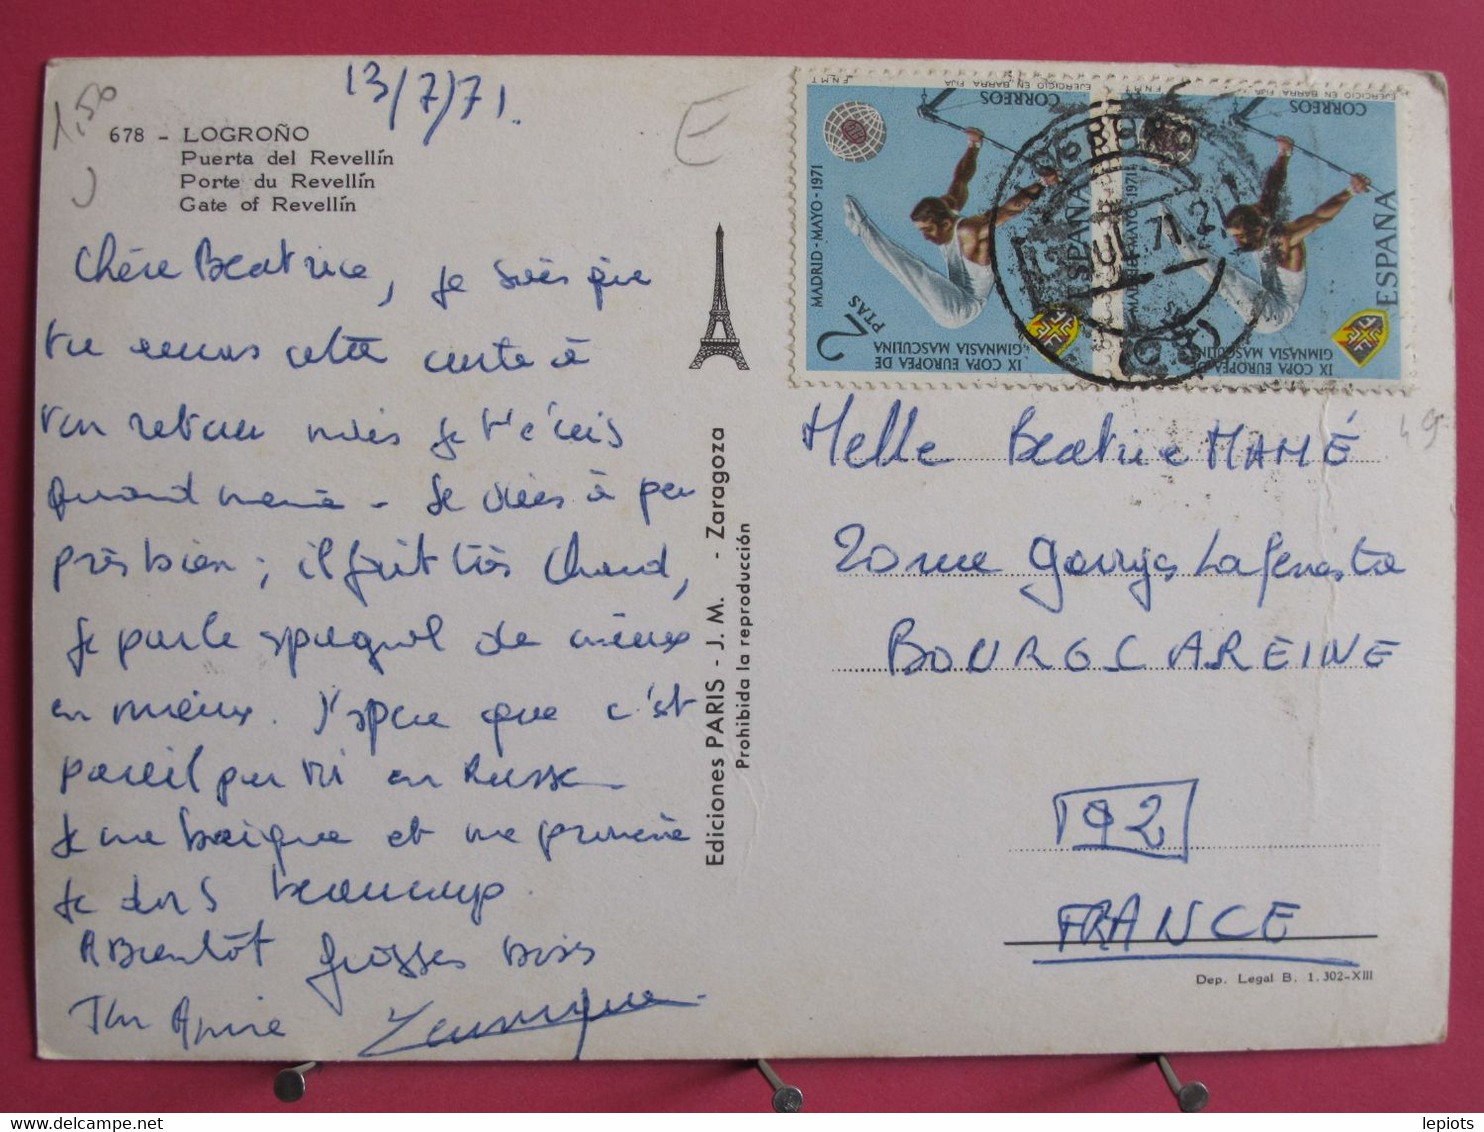 13/7/71.
1,50
E
678 - LOGROÑO
Puerta del Revellín
Porte du Revellín
Gate of Revellín
Chère Beatrice, je sais que
tu verras cette carte à
ton retour mais je t'écris
quand même - Je vais à peu
près bien ; il fait très chaud,
je parle espagnol de mieux
en mieux. J'espère que c'est
pareil pour toi en Russe
Je me baigne et me promène
Je dors beaucoup.
A Bientôt grosses bises
Ton Amie
Ediciones PARIS - J. M. - Zaragoza
Prohibida la reproducción
F.N.M.T. EJERCICIO EN BARRA FIJA
CORREOS
ESPAÑA
MADRID - MAYO - 1971
2 PTAS
IX COPA EUROPEA DE
GIMNASIA MASCULINA
F.N.M.T. EJERCICIO EN BARRA FIJA
CORREOS
ESPAÑA
MAYO - 1971
IX COPA EUROPEA DE
GIMNASIA MASCULINA
49
Melle Beatrice MAMÉ
20 rue Georges Lafenestre
BOURG LA REINE
92
FRANCE
Dep. Legal B. 1.302-XIII
lepiots